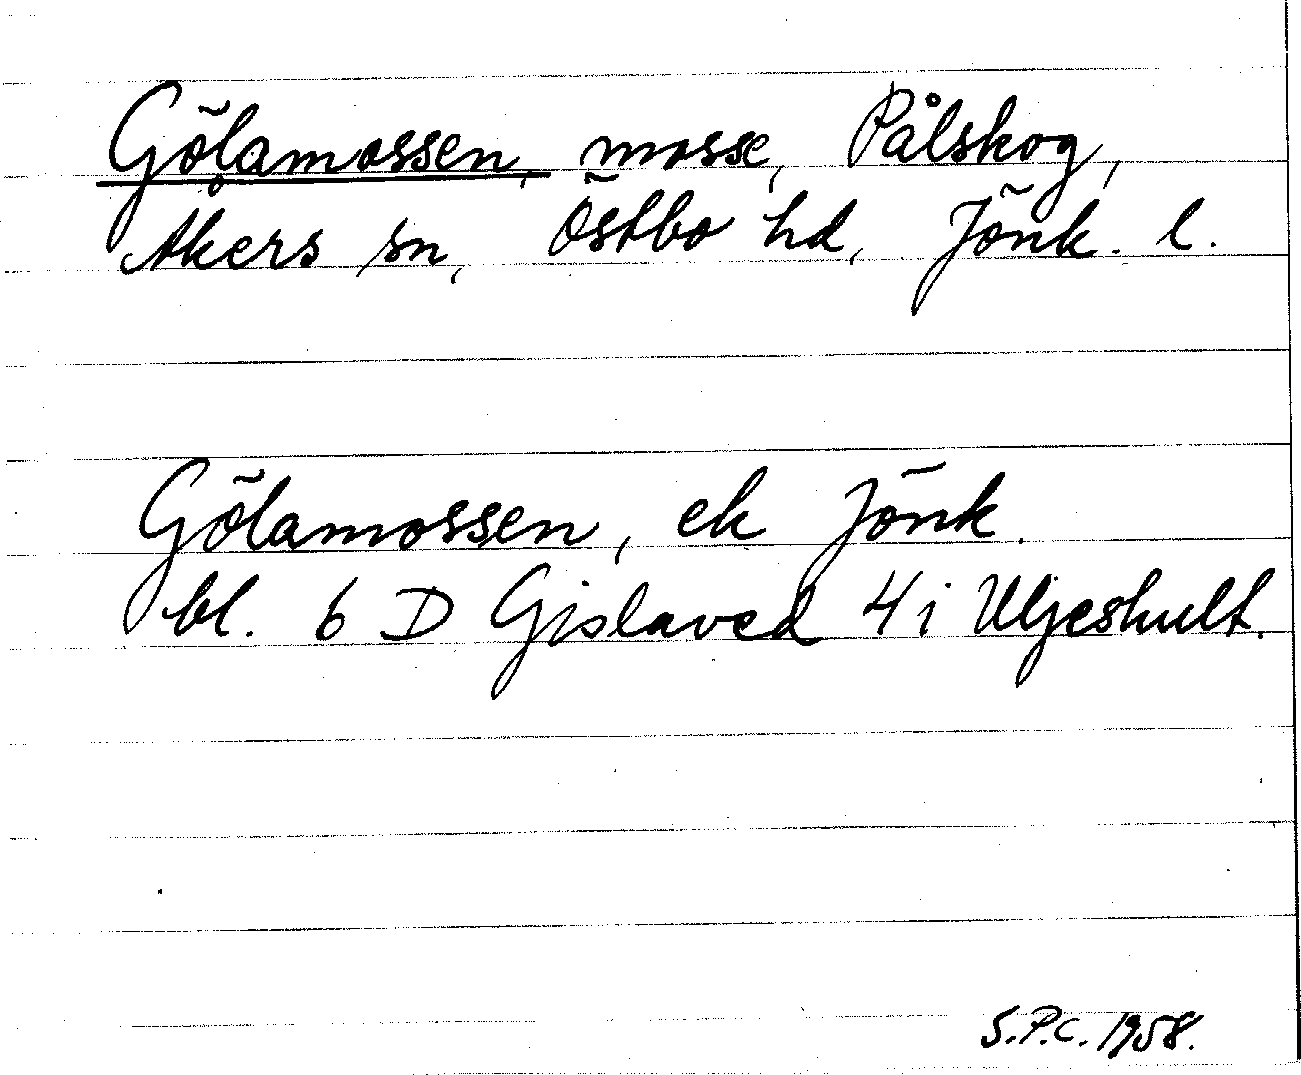 Gölamossen, mosse, Pålskog,
Åkers sn, Östbo hd, Jönk. l.
Gölamossen, ek Jönk.
bl. 6 D Gislaved 4 i Uljeshult.
S.P.C. 1958.